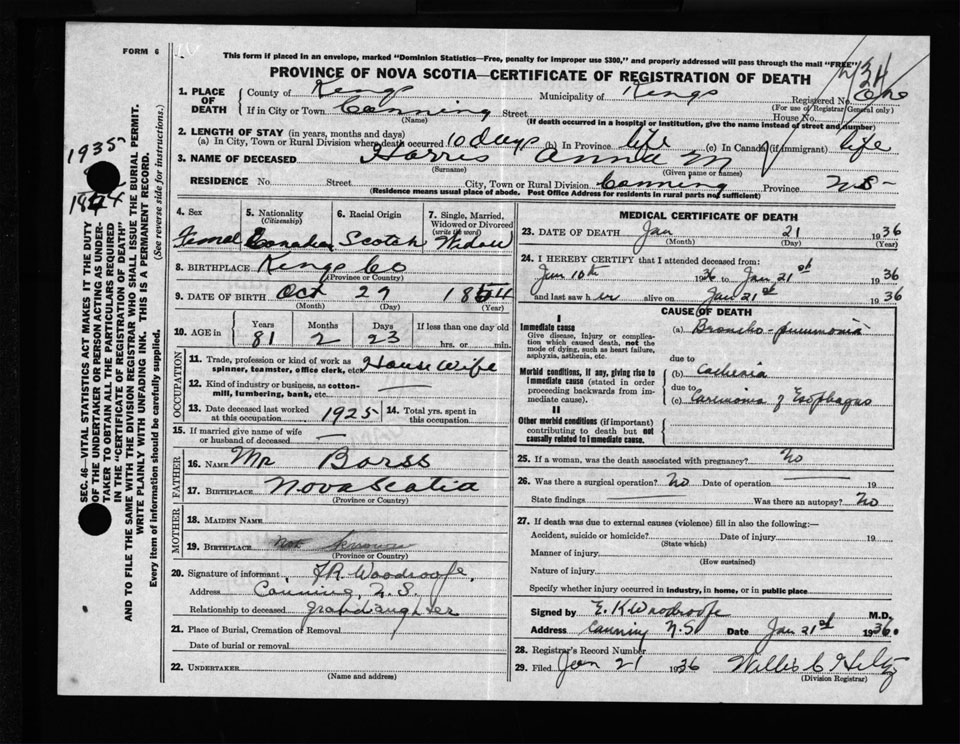 FORM 6
This form if placed in an envelope, marked "Dominion Statistics—Free, penalty for improper use $300," and properly addressed will pass through the mail "FREE"
PROVINCE OF NOVA SCOTIA—CERTIFICATE OF REGISTRATION OF DEATH
1. PLACE OF DEATH County of Kings Municipality of Kings Registered No.
(For use of Registrar General only)
If in City or Town Canning Street House No.
(Name) (If death occurred in a hospital or Institution, give the name instead of street and number)
2. LENGTH OF STAY (in years, months and days)
(a) In City, Town or Rural Division where death occurred 10 days (b) In Province life (c) In Canada (if immigrant) life
3. NAME OF DECEASED Harris Anna M
(Surname) (Given name or names)
RESIDENCE No. Street City, Town or Rural Division Canning Province N.S-
(Residence means usual place of abode. Post Office Address for residents in rural parts not sufficient)
4. Sex 5. Nationality (Citizenship) 6. Racial Origin 7. Single, Married, Widowed or Divorced (write the word)
Femal Canadian Scotch Widow
8. BIRTHPLACE Kings Co
(Province or Country)
9. DATE OF BIRTH Oct 29 1854
(Month) (Day) (Year)
10. AGE in Years Months Days If less than one day old
81 2 23 hrs. or min.
OCCUPATION
11. Trade, profession or kind of work as spinner, teamster, office clerk, etc. House Wife
12. Kind of industry or business, as cotton-mill, lumbering, bank, etc. —
13. Date deceased last worked at this occupation 1925 14. Total yrs. spent in this occupation
15. If married give name of wife or husband of deceased —
FATHER
16. NAME Mr Borss
17. BIRTHPLACE Nova Scotia
(Province or Country)
MOTHER
18. MAIDEN NAME
19. BIRTHPLACE not known
(Province or Country)
20. Signature of informant F.R. Woodroofe,
Address Canning, N.S.
Relationship to deceased grandaughter
21. Place of Burial, Cremation or Removal
Date of burial or removal
22. UNDERTAKER
(Name and address)
MEDICAL CERTIFICATE OF DEATH
23. DATE OF DEATH Jan 21 1936
(Month) (Day) (Year)
24. I HEREBY CERTIFY that I attended deceased from:
Jan 10th 1936 to Jan 21st 1936
and last saw her alive on Jan 21st 1936
CAUSE OF DEATH
I
Immediate cause
Give disease, injury or complication which caused death, not the mode of dying, such as heart failure, asphyxia, asthenia, etc.
(a) Broncho-pneumonia
due to
Morbid conditions, if any, giving rise to immediate cause (stated in order proceeding backwards from immediate cause).
(b) Cachexia
due to
(c) Carcinoma of Esophagus
II
Other morbid conditions (if important) contributing to death but not causally related to immediate cause.
25. If a woman, was the death associated with pregnancy? No
26. Was there a surgical operation? No Date of operation — 19
State findings — Was there an autopsy? No
27. If death was due to external causes (violence) fill in also the following:—
Accident, suicide or homicide? Date of injury 19
(State which)
Manner of injury
(How sustained)
Nature of injury
Specify whether injury occurred in industry, in home, or in public place
Signed by E. K Woodroofe M.D.
Address Canning N.S Date Jan 21st 1936.
28. Registrar's Record Number
29. Filed Jan 21 1936 Willis C
(Division Registrar)
SEC. 46—VITAL STATISTICS ACT MAKES IT THE DUTY
OF THE UNDERTAKER OR PERSON ACTING AS UNDER-
TAKER TO OBTAIN ALL THE PARTICULARS REQUIRED
IN THE "CERTIFICATE OF REGISTRATION OF DEATH"
AND TO FILE THE SAME WITH THE DIVISION REGISTRAR WHO SHALL ISSUE THE BURIAL PERMIT.
WRITE PLAINLY WITH UNFADING INK. THIS IS A PERMANENT RECORD.
Every item of information should be carefully supplied. (See reverse side for instructions.)
1935